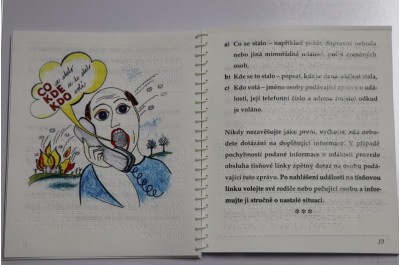 co se stalo
kde se to stalo
kdo volá
CO
KDE
KDO
a) Co se stalo – například požár, dopravní nehoda
nebo jiná mimořádná událost, počet zraněných
osob,
b) Kde se to stalo – popsat, kde se daná událost stala,
c) Kdo volá – jméno osoby podávající zprávu o udá-
losti, její telefonní číslo a adresa (místo), odkud
je voláno.
Nikdy nezavěšujte jako první, vyčkejte, zda nebu-
dete dotázáni na doplňující informace. V případě
pochybností podané informace o události provede
obsluha tísňové linky zpětný dotaz na osobu podá-
vající tuto zprávu. Po nahlášení události na tísňovou
linku volejte své rodiče nebo pečující osobu a infor-
mujte ji stručně o nastalé situaci.
***